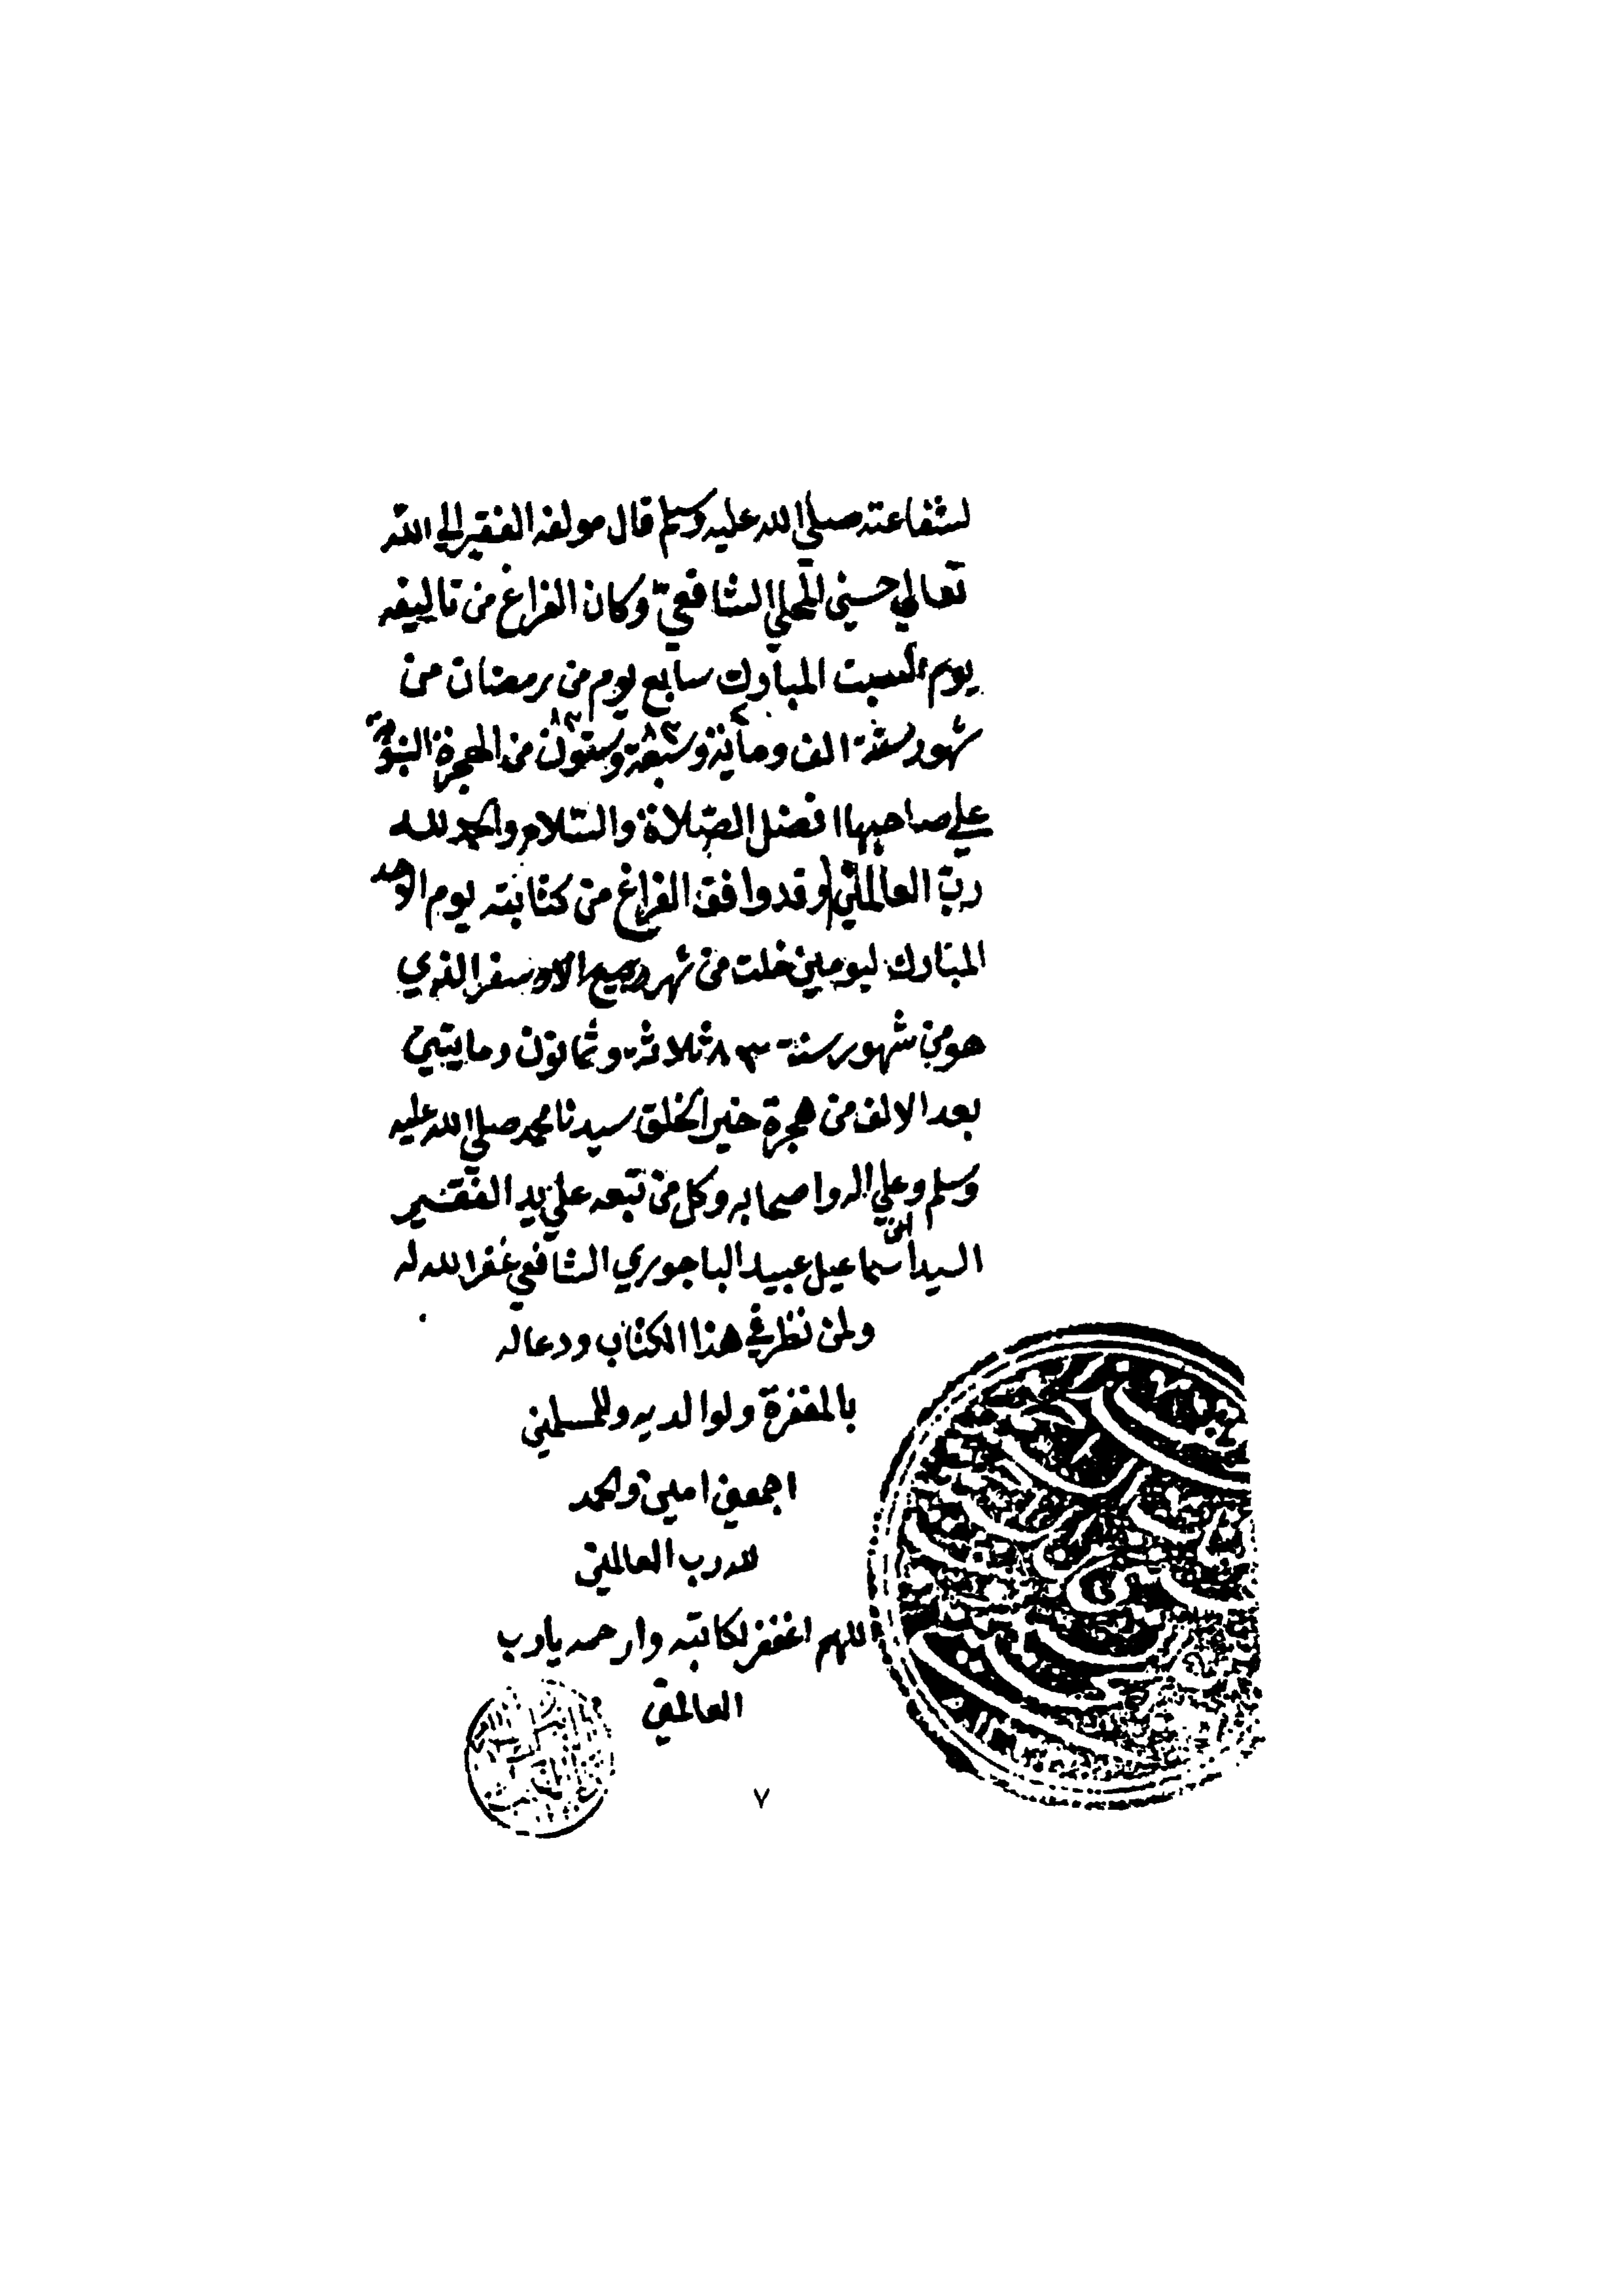 لشفاعته صلي الله عليه وسلم قال مولفه الفقير الي الله
تعالي حسين المحلي الشافعي وكان الفراغ من تاليفه
يوم السبت المبارك سابع يوم من رمضان من
شهور سنة الف وماية وسبعة وستون من الهجرة النبوية
علي صاحبها افضل الصلاة والسلام والحمد لله
رب العالمين وقد وافق الفراغ من كتابته يوم الاحد
المبارك ليومين خلت من شهر ربيع الذي
هو من شهور سنة ٨٣ ثلاثة وثمانون ومايتين
بعد الالف من هجرة خير الخلق سيدنا محمد صلي الله عليه
وسلم وعلي اله واصحابه وكل من تبعه علي يد الفقير
السيد اسماعيل ابن عبيد الباجوري الشافعي غفر الله له
ولمن نظر في هذا الكتاب ودعا له
بالمغفرة ولوالديه وللمسلمين
اجمعين امين والحمد
لله رب العالمين
اللهم اغفر لكاتبه وارحمه يارب
العالمين
٧